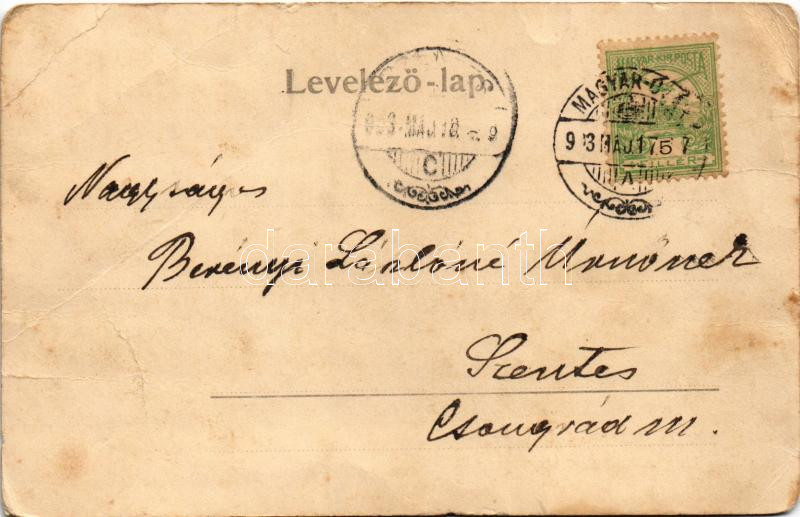 Levelező-lap
MAGYAR-Ó
903 MÁJ 17
MAGYAR KIR. POSTA
5
FILLÉR
903 MÁJ 18
C
Nagyságos
Berényi Lászlóné Urnőnek
darabanth
Szentes
Csongrád m.